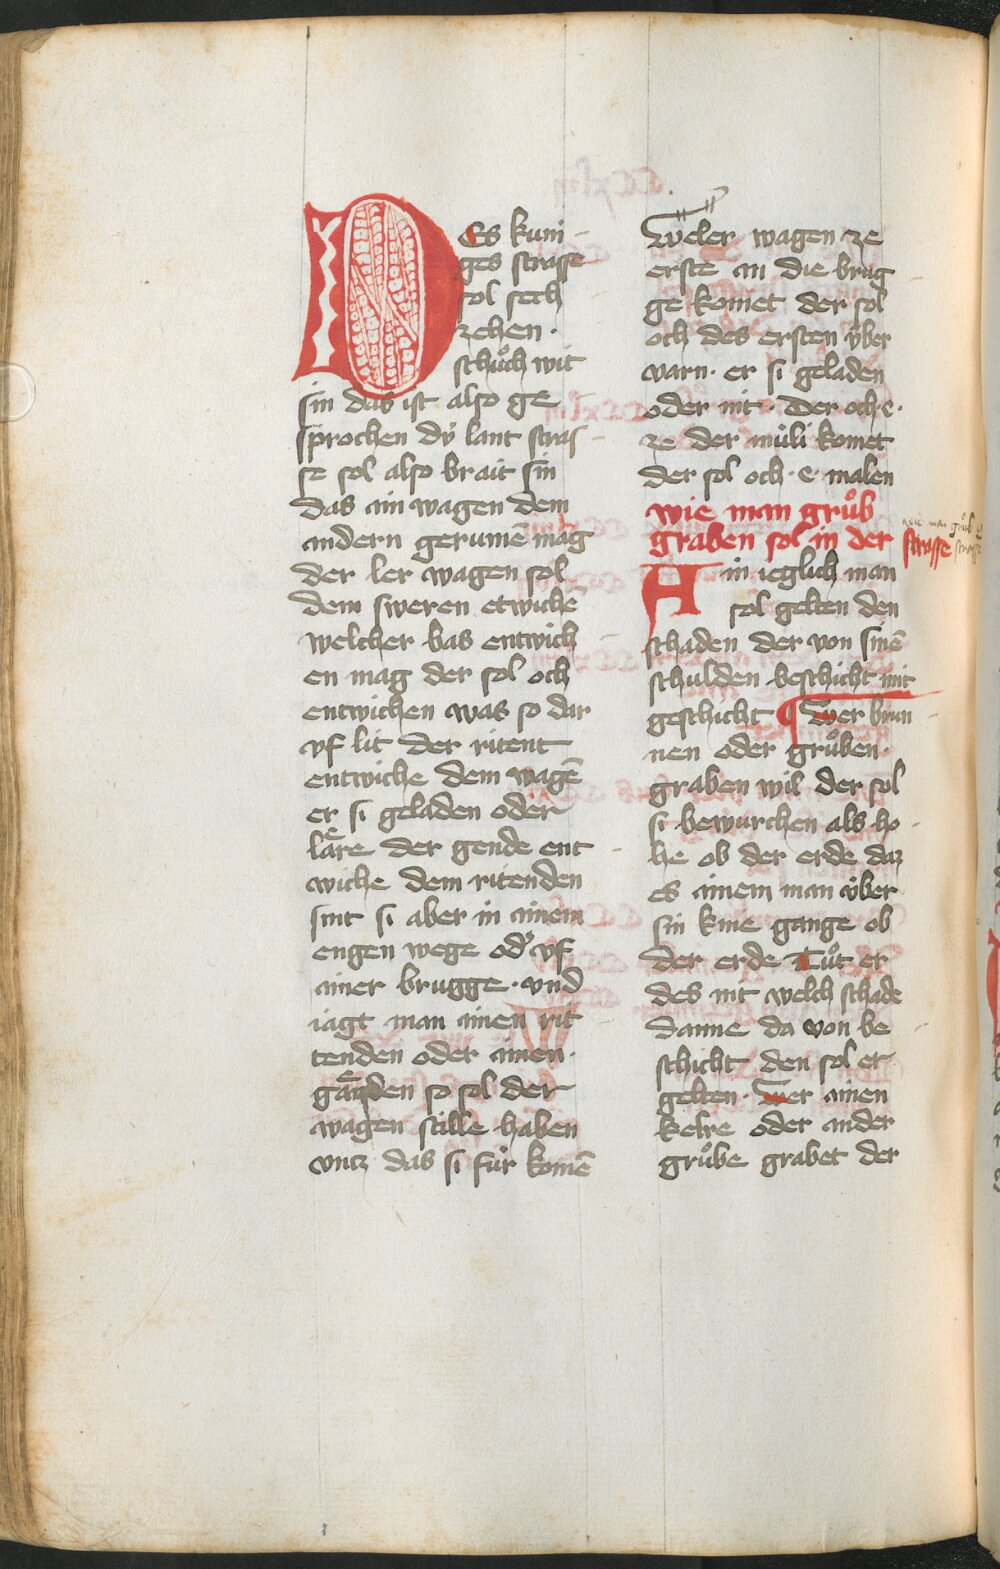 DEs kuni
ges strasse
sol sech
zehen ·
schuͦch wit
sin das ist also ge
sprochen dÿ lant stras
se sol also brait sin
das ain wagen dem
andern gerumē mag
der ler wagen sol
dem sweren etwichē
welcher bas entwich
en mag der sol och
entwichen was so dar
vf lit der ritent
entwiche dem wagē
er si geladen oder
laͤre der gende ent
wiche dem ritenden
sint si aber in ainem
engen wege od' vf
ainer brugge · vnd
iagt man ainen rit
tenden oder ainen ·
gaͤnden so sol der
wagen stille haben
vntz das si fuͥr komē
Weler wagen ze
erste an die brug
ge komet der sol
och des ersten v̈ber
varn · er si geladen
oder nit · Der och · e ·
ze der muͥli komet
der sol och · e · malen
wie man gruͦb
graben sol in der strasse
wie man gruͦb
strasse
Ain ieglich man
sol gelten den
schaden der von sinē
schulden beschicht nit
geschicht ¶ Wer brun
nen oder gruͦben ·
graben wil der sol
si bewurchen als ho
he ob der erde daz
es ainem man v̈ber
sin knie gange ob
der erde Tuͦt er
des nit welch schade
danne da von be
schicht den sol er
gelten · Wer ainen
kelre oder ander
gruͦbe grabet der